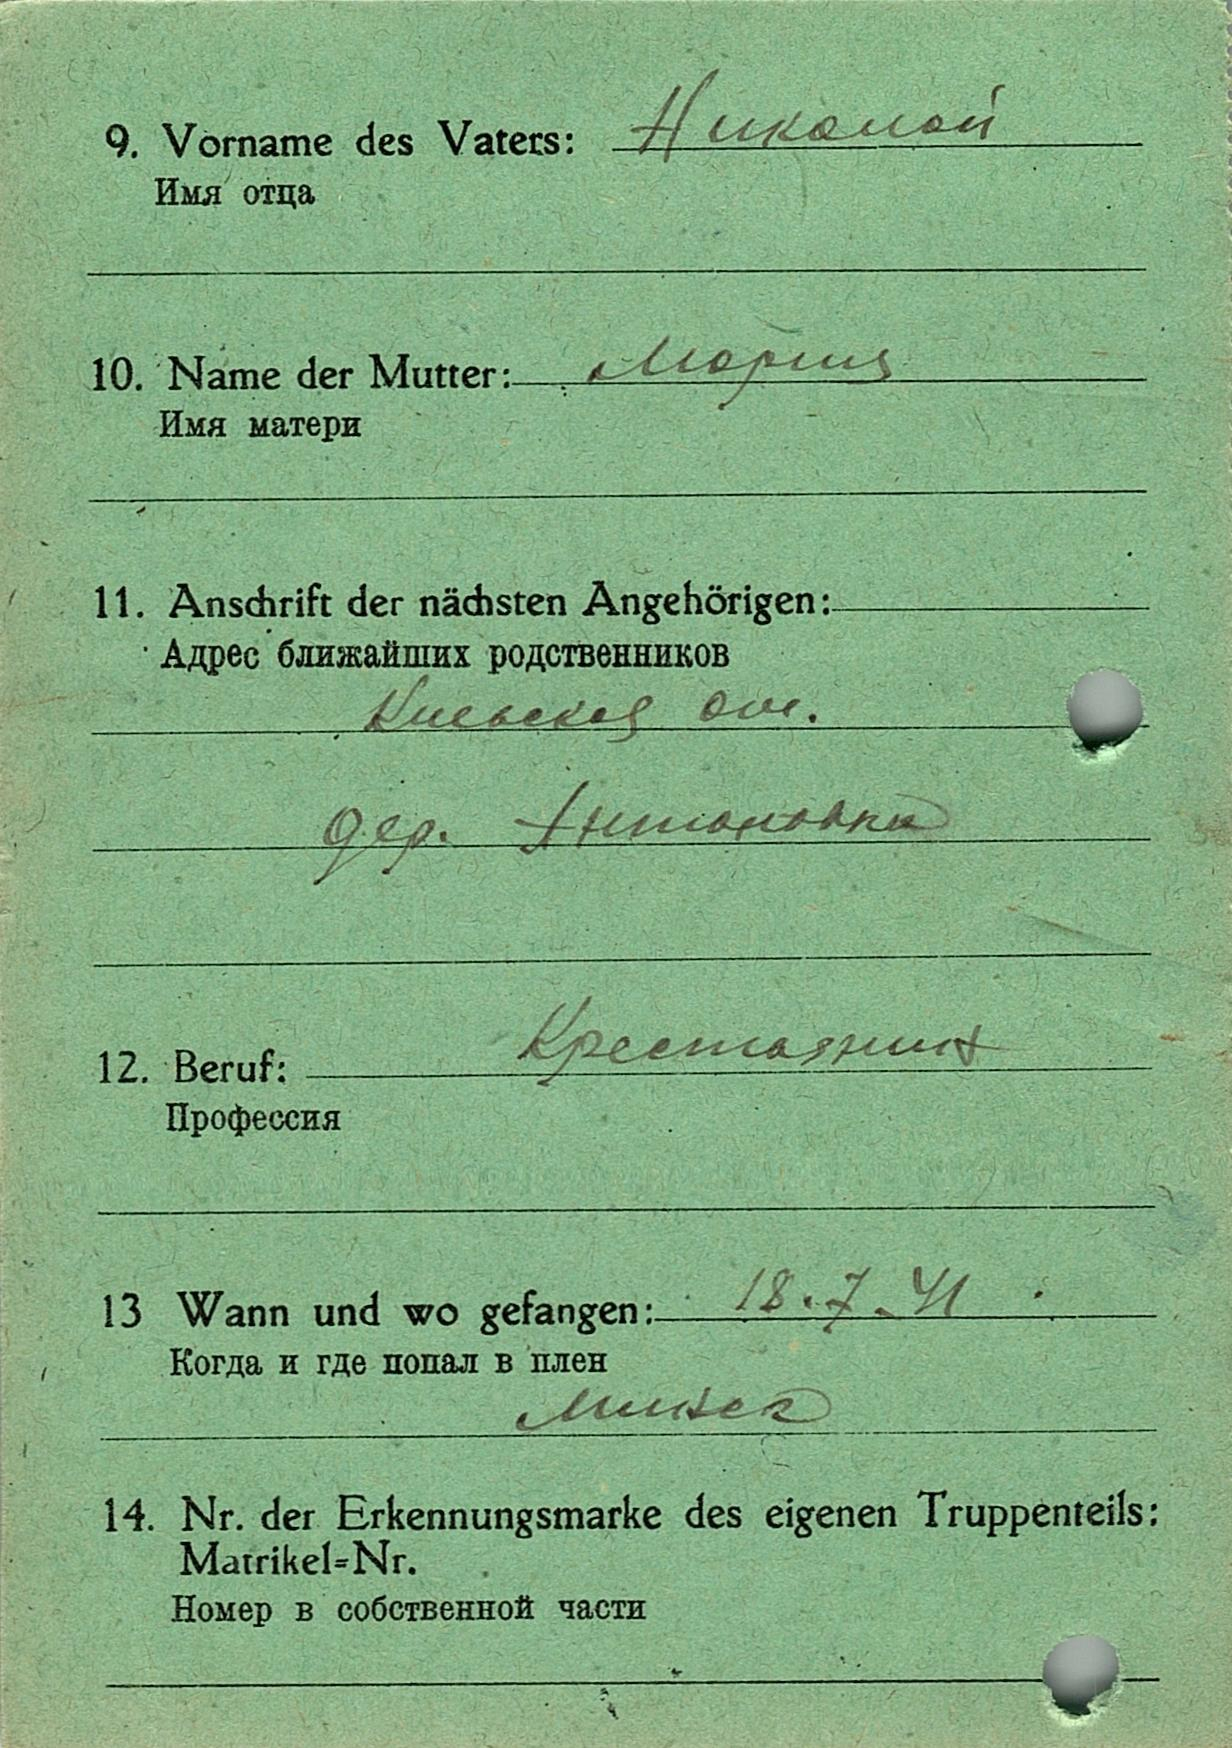 9. Vorname des Vaters: Николай
Имя отца
10. Name der Mutter: Мария
Имя матери
11. Anschrift der nächsten Angehörigen:
Адрес ближайших родственников
Киевская обл.
дер. Антоновка
12. Beruf: Крестьянин
Профессия
13 Wann und wo gefangen: 18.7.41
Когда и где попал в плен
Минск
14. Nr. der Erkennungsmarke des eigenen Truppenteils:
Matrikel=Nr.
Номер в собственной части